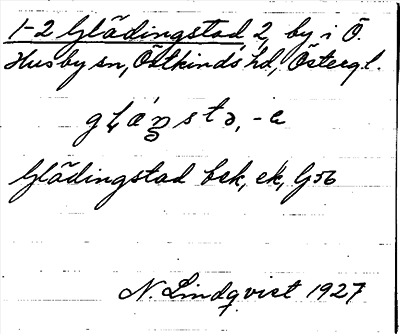 1-2 Glädingstad 2, by i Ö.
Husby sn, Östkinds hd, Östergl.
Glädingstad bek, ek, G56
N. Lindqvist 1927